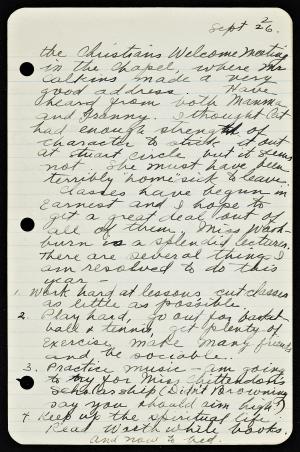 Sept 2/26.
the Christians Welcome Meeting
in the Chapel, where Mr
Calkins made a very
good address. Have
heard from both Mamma
and Franny. I thought Cat
had enough strength of
character to stick it out
at Stuart Circle but it seems
not. She must have been
terribly home "sick to leave.
Classes have begun in
Earnest and I hope to
get a great deal out of
all of them, Miss Wash-
burn is a splendid lecturer.
There are several things I
am resolved to do this
year -
1. Work hard at lessons cut classes
as little as possible
2. Play hard, go out for basket
ball & tennis, get plenty of
Exercise, make many friends
and be sociable.
3. Practice music - am going
to try for Miss Chittendon's
Scholarship (Didn't Browning
say you should aim high?)
4 Keep up the spiritual life
Read Worth while books.
and now to bed.